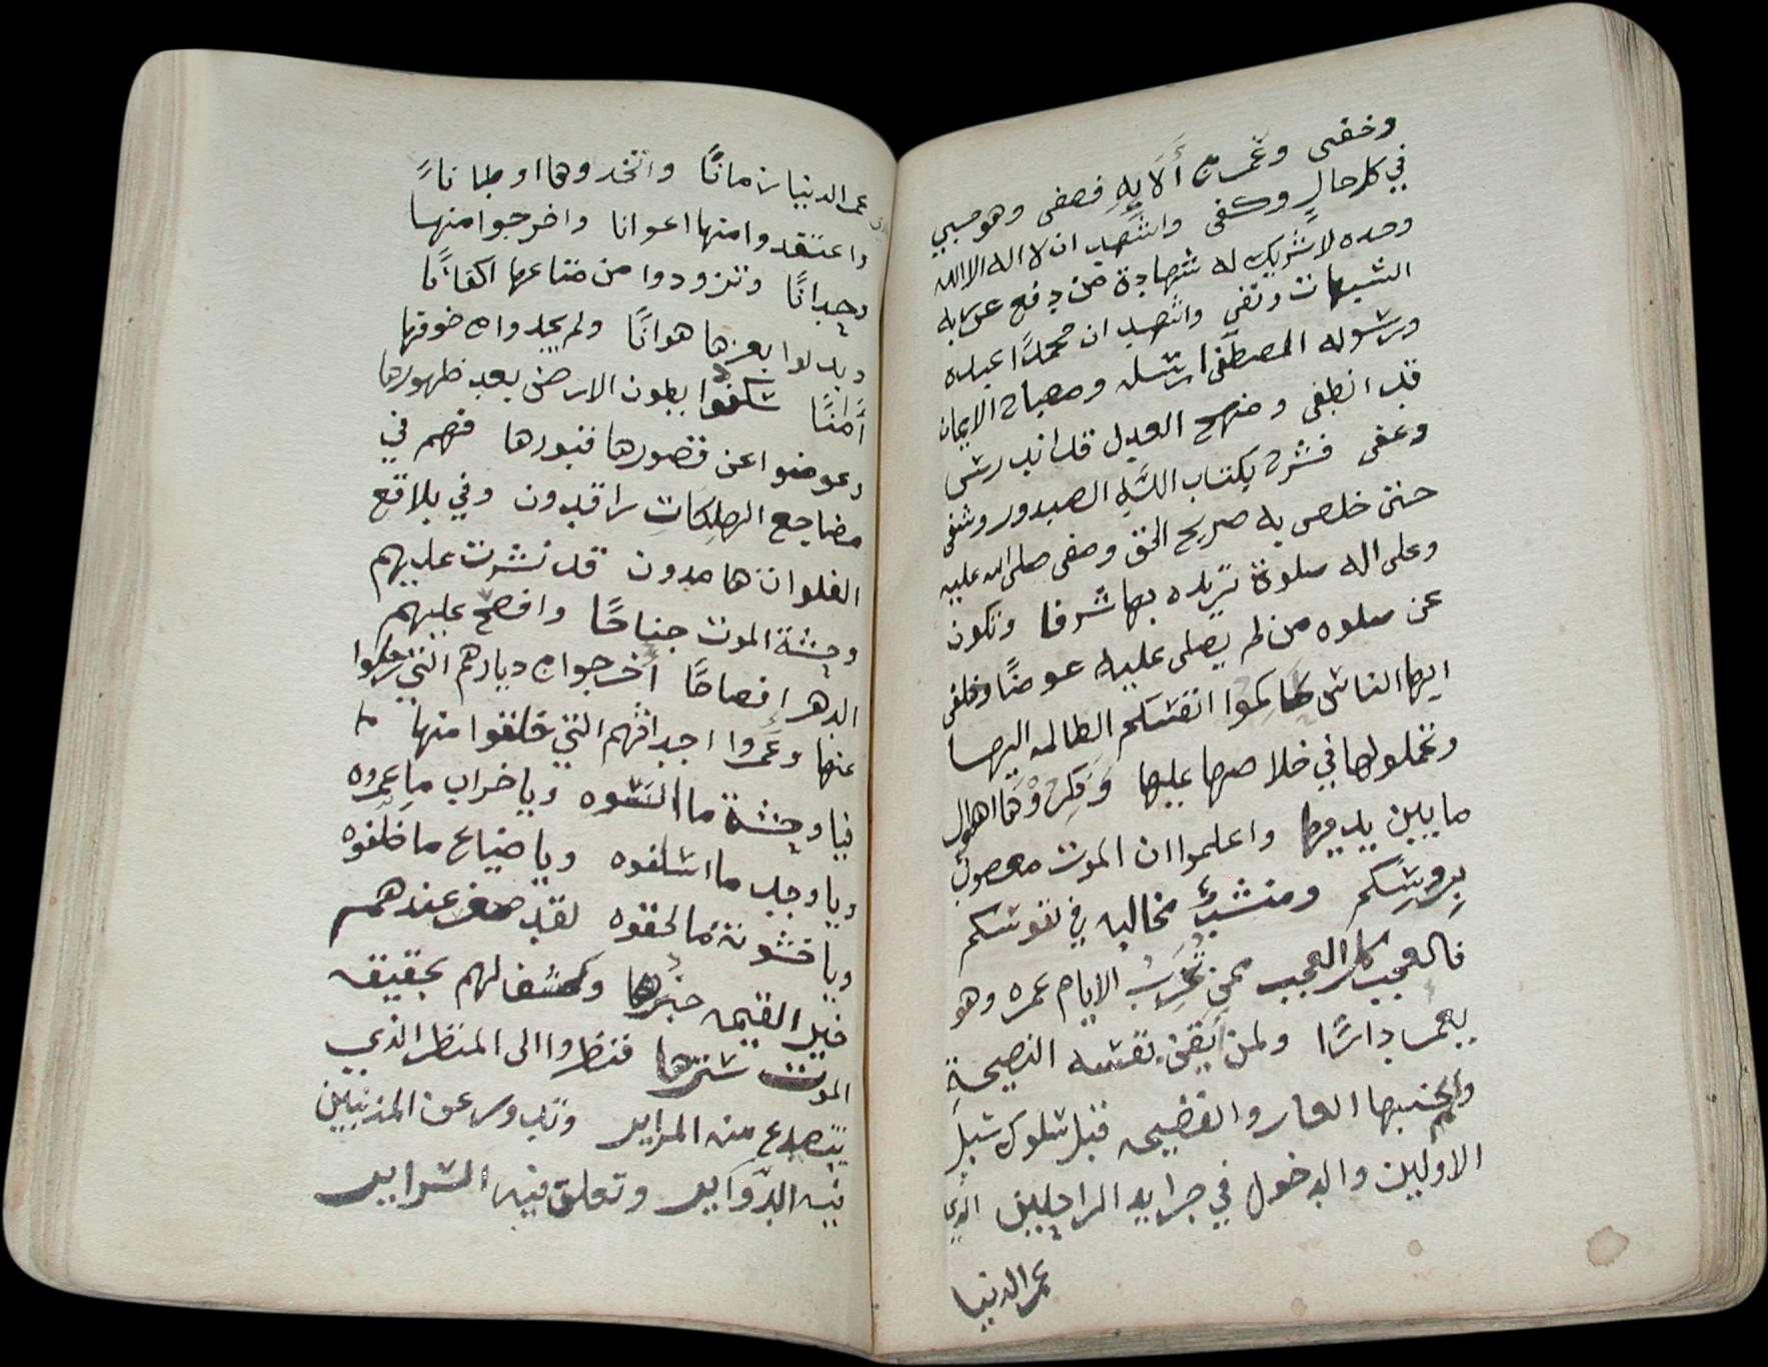 وخفى وغمر من ألايه فصفى وهو حسبي
في كل حالٍ وكفى واشهد ان لا اله الا الله
وحده لا شريك له شهادة من دفع عن
الشبهات ونفى واشهد ان محمدًا عبده
ورسوله المصطفى ارسله ومصباح الايمان
قد انطفى ومنهج العدل قد اندرس
وعفى فشرح بكتاب الله الصدور وشفى
حتى خلص به صريح الحق وصفى صلى الله عليه
وعلى اله صلوة تزيده بها شرفا وتكون
عن صلوه من لم يصلى عليه عوضًا وخلفى
ايها الناس حاكموا انفسكم الظالمه اليها
وتحملو لها في خلاصها عليها وفكروها اهوال
ما بين يديها واعلموا ان الموت معصوب
بروسكم ومنشبٌ مخالبه في نفوسكم
فالعجب كل العجب ممن تخرب الايام عمره وهو
يعمر دارًا ولمن نفسه النصيحة
والعار والفضيحه قبل سلوك سبل
الاولين والدخول في جرايد الراحلين الذي
عمر الدنيا
عمر الدنيا زمانًا واتخدوها اوطانًا
واعتقدوا منها اعوانا واخرجوا منها
وحدانًا وتزودوا من متاعها اكفانًا
وبدلوا بعزها هوانًا ولم يجدوا من خوفها
أمنًا سكنوا بطون الارض بعد ظهورها
وعوضوا عن قصورها قبورها فهم في
مضاجع الهلكات راقدون وفي بلاقع
الفلوات هامدون قد نشرت عليهم
وحشة الموت جناحًا وافصح عليهم
الدهر افصاحًا أخرجوا من ديارهم التي
عنها وعمروا اجداثهم التي خلقوا منها
فيا وحشة ما انسوه ويا خراب ما عمروه
ويا وجد ما اسلفوه ويا ضياع ما خلفوه
ويا خشونة ما لحقوه لقد صغر عندهم
قبل القيمه خبرها وكشف لهم بحقيقه
الموت سترها فنظروا الى المنظر الذي
يتصدع منه المراير وتدور على المذنبين
فيه الدواير وتعلق فيه السراير